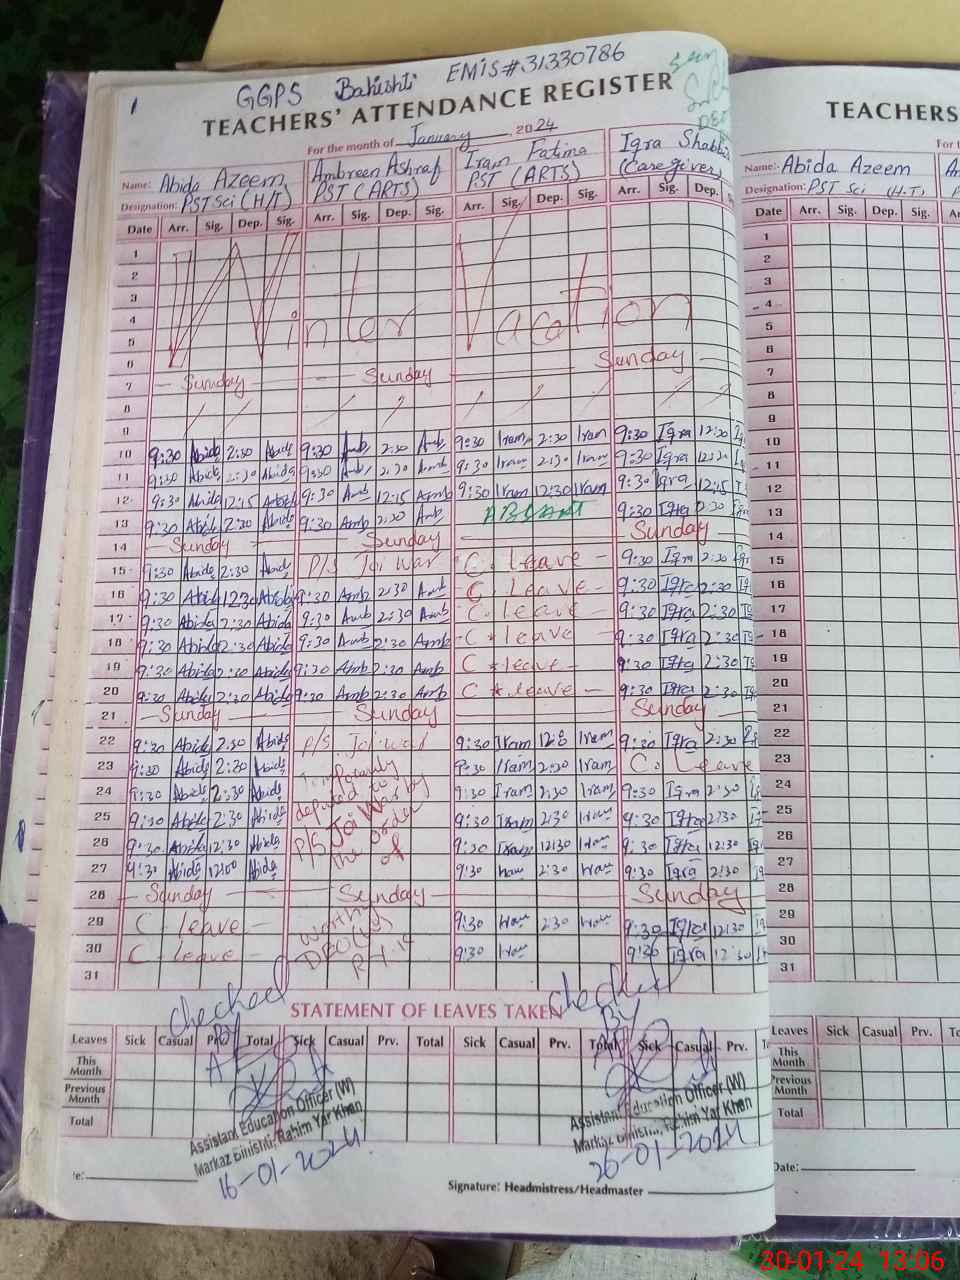 1 GGPS Bahishti EMIS#31330786
TEACHERS' ATTENDANCE REGISTER
For the month of January, 2024
Name: Abida Azeem Ambreen Ashraf Iram Fatima Iqra Shabbir
Designation: PST Sci (H/T) PST (ARTS) PST (ARTS) (Caregiver)
Date Arr. Sig. Dep. Sig. Arr. Sig. Dep. Sig. Arr. Sig. Dep. Sig. Arr. Sig. Dep.
1
2
3
4
5
Winter Vacation
6
7 Sunday Sunday Sunday
8
9
10 9:30 Abida 2:30 Abida 9:30 Amb 2:30 Amb 9:30 Iram 2:30 Iram 9:30 Iqra 12:30
11 9:30 Abida 2:30 Abida 9:30 Amb 2:30 Amb 9:30 Iram 2:30 Iram 9:30 Iqra
12 9:30 Abida 12:15 Abida 9:30 Amb 12:15 Amb 9:30 Iram 12:30 Iram 9:30 Iqra 12:15
13 9:30 Abida 2:30 Abida 9:30 Amb 2:30 Amb Absent 9:30 Iqra
14 Sunday Sunday Sunday
15 9:30 Abida 2:30 Abida P/S Joi War C. leave 9:30 Iqra 2:30
16 9:30 Abida 12:30 Abida 9:30 Amb 2:30 Amb C. leave 9:30 Iqra 2:30
17 9:30 Abida 2:30 Abida 9:30 Amb 2:30 Amb C. leave 9:30 Iqra 2:30
18 9:30 Abida 2:30 Abida 9:30 Amb 2:30 Amb C. leave 9:30 Iqra 2:30
19 9:30 Abida 2:30 Abida 9:30 Amb 2:30 Amb C. leave 9:30 Iqra 2:30
20 9:30 Abida 2:30 Abida 9:30 Amb 2:30 Amb C. leave 9:30 Iqra 2:30
21 Sunday Sunday Sunday
22 9:30 Abida 2:30 Abida P/S Joi War 9:30 Iram Iram 9:30 Iqra 2:30
23 9:30 Abida 2:30 Abida Temporarily 9:30 Iram 2:30 Iram C. Leave
24 9:30 Abida 2:30 Abida deputed to 9:30 Iram 2:30 Iram 9:30 Iqra 2:30
25 9:30 Abida 2:30 Abida P/S Joi War by 9:30 Iram 2:30 Iram 9:30 Iqra 2:30
26 9:30 Abida 12:30 Abida the order 9:30 Iram 12:30 Iram 9:30 Iqra 12:30
27 9:30 Abida 12:00 Abida of 9:30 Iram 2:30 Iram 9:30 Iqra 2:30
28 Sunday Sunday Sunday
29 C. leave worthy 9:30 Iram 2:30 Iram 9:30 Iqra 12:30
30 C. leave DEO 9:30 Iram 9:30 Iqra 12:30
31
checked checked
STATEMENT OF LEAVES TAKEN
By By
Leaves Sick Casual Prv. Total Sick Casual Prv. Total Sick Casual Prv. Total Sick Casual Prv.
This Month
Previous Month
Total
Assistant Education Officer (W) Assistant Education Officer (W)
Markaz Binishti, Rahim Yar Khan Markaz Binishti, Rahim Yar Khan
16-01-2024 26-01-2024
Signature: Headmistress/Headmaster
TEACHERS
Name: Abida Azeem
Designation: PST Sci (H.T)
Date Arr. Sig. Dep. Sig.
1
2
3
4
5
6
7
8
9
10
11
12
13
14
15
16
17
18
19
20
21
22
23
24
25
26
27
28
29
30
31
Leaves Sick Casual Prv.
This Month
Previous Month
Total
Date:
30-01-24 13:06